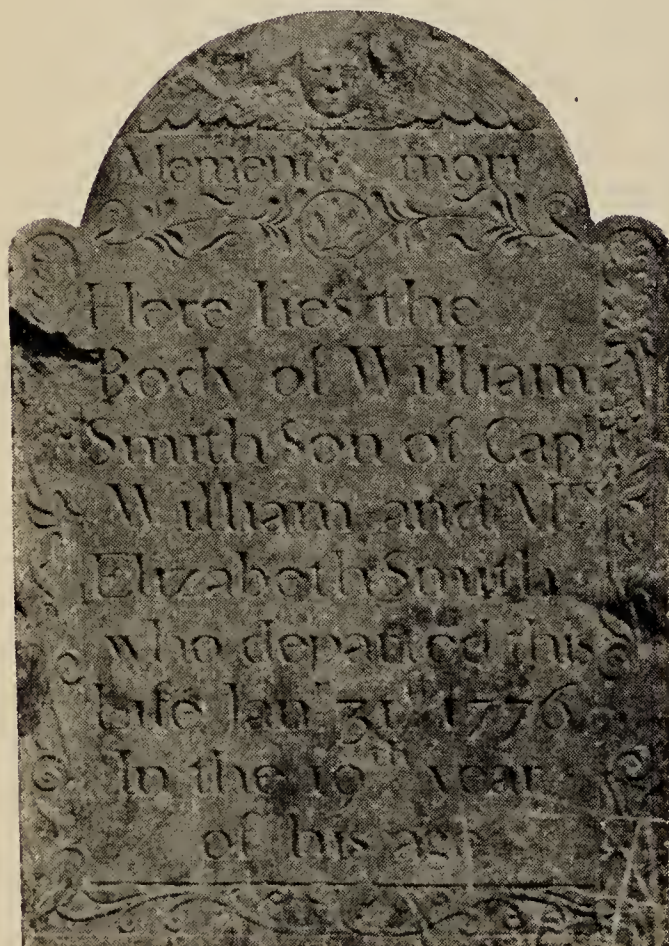 Memento mori
Here lies the
Body of William
Smith Son of Capᵗ
William and Mʳˢ
Elizabeth Smith
who departed this
Life Janʸ 31ᵗʰ 1776
In the 19ᵗʰ year
of his age